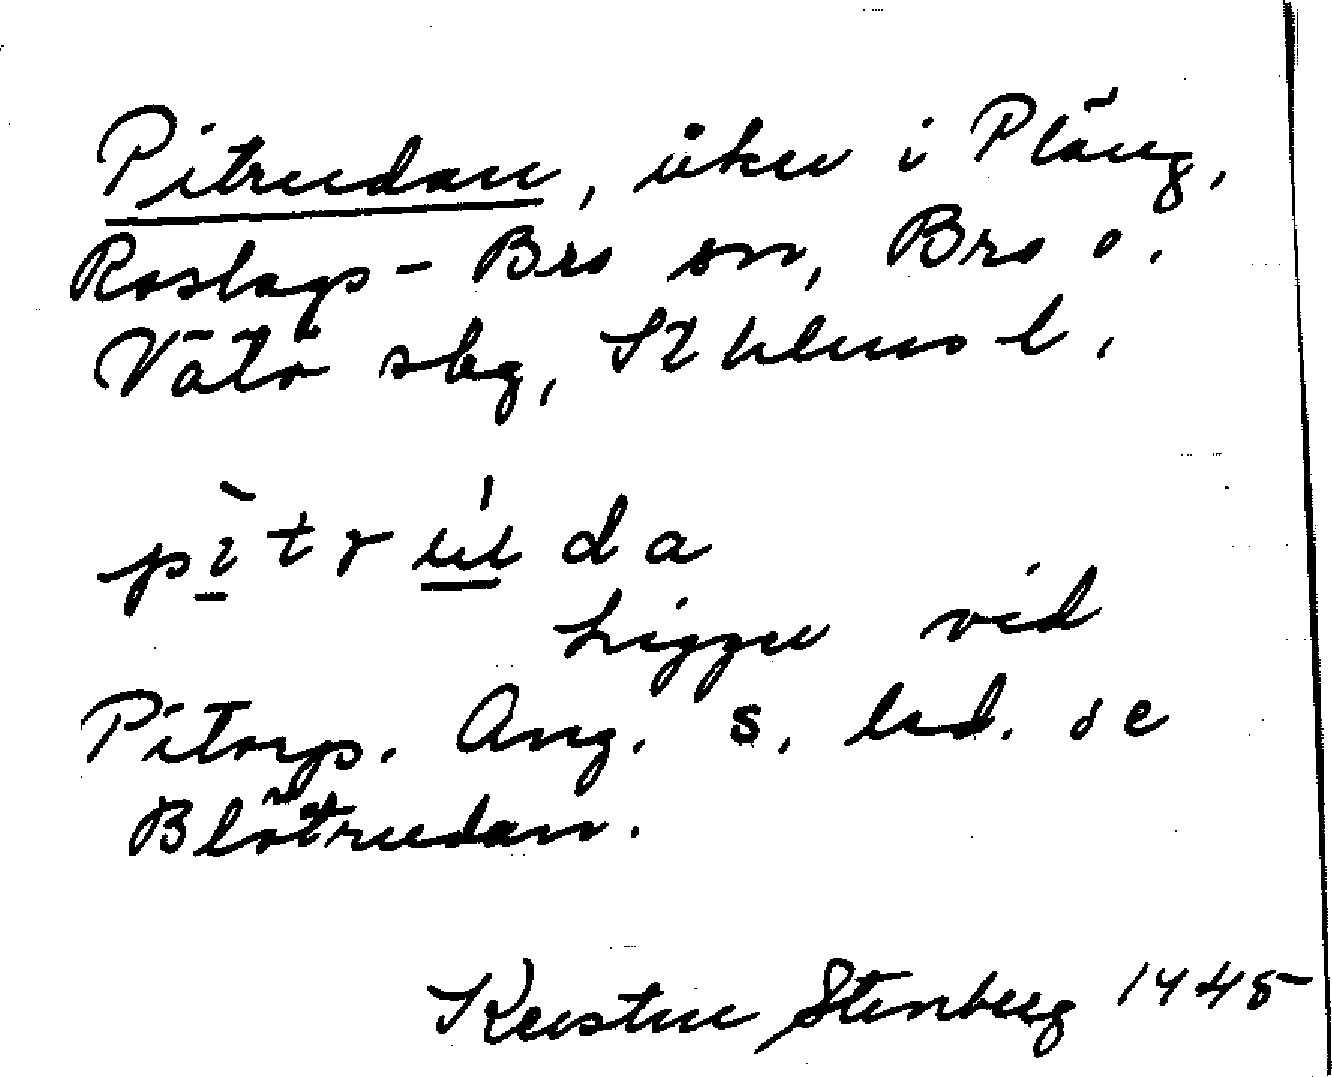 Pitrudan, åker i Pläng,
Roslags-Bro sn, Bro o.
Vätö skg, Sthlms l.
pìtrúda
Ligger vid
Pitorp. Ang. s. led. se
Blötrudan.
Kerstin Stenberg 1945